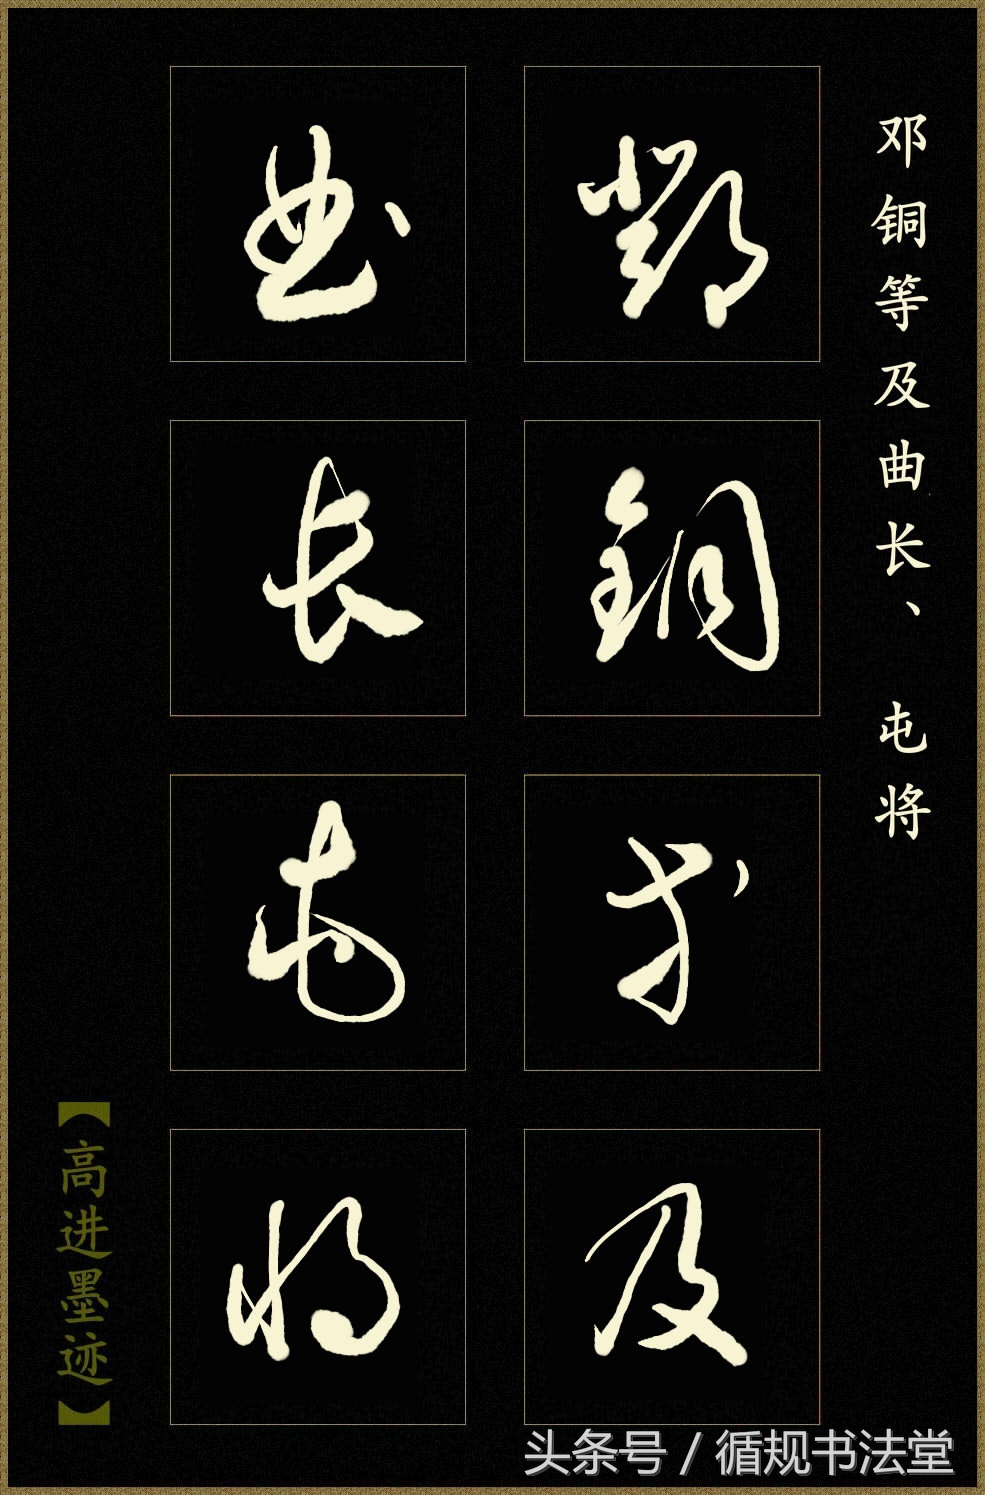 邓铜等及曲长、屯将
鄧銅等及
曲長屯将
【高进墨迹】
头条号 / 循规书法堂